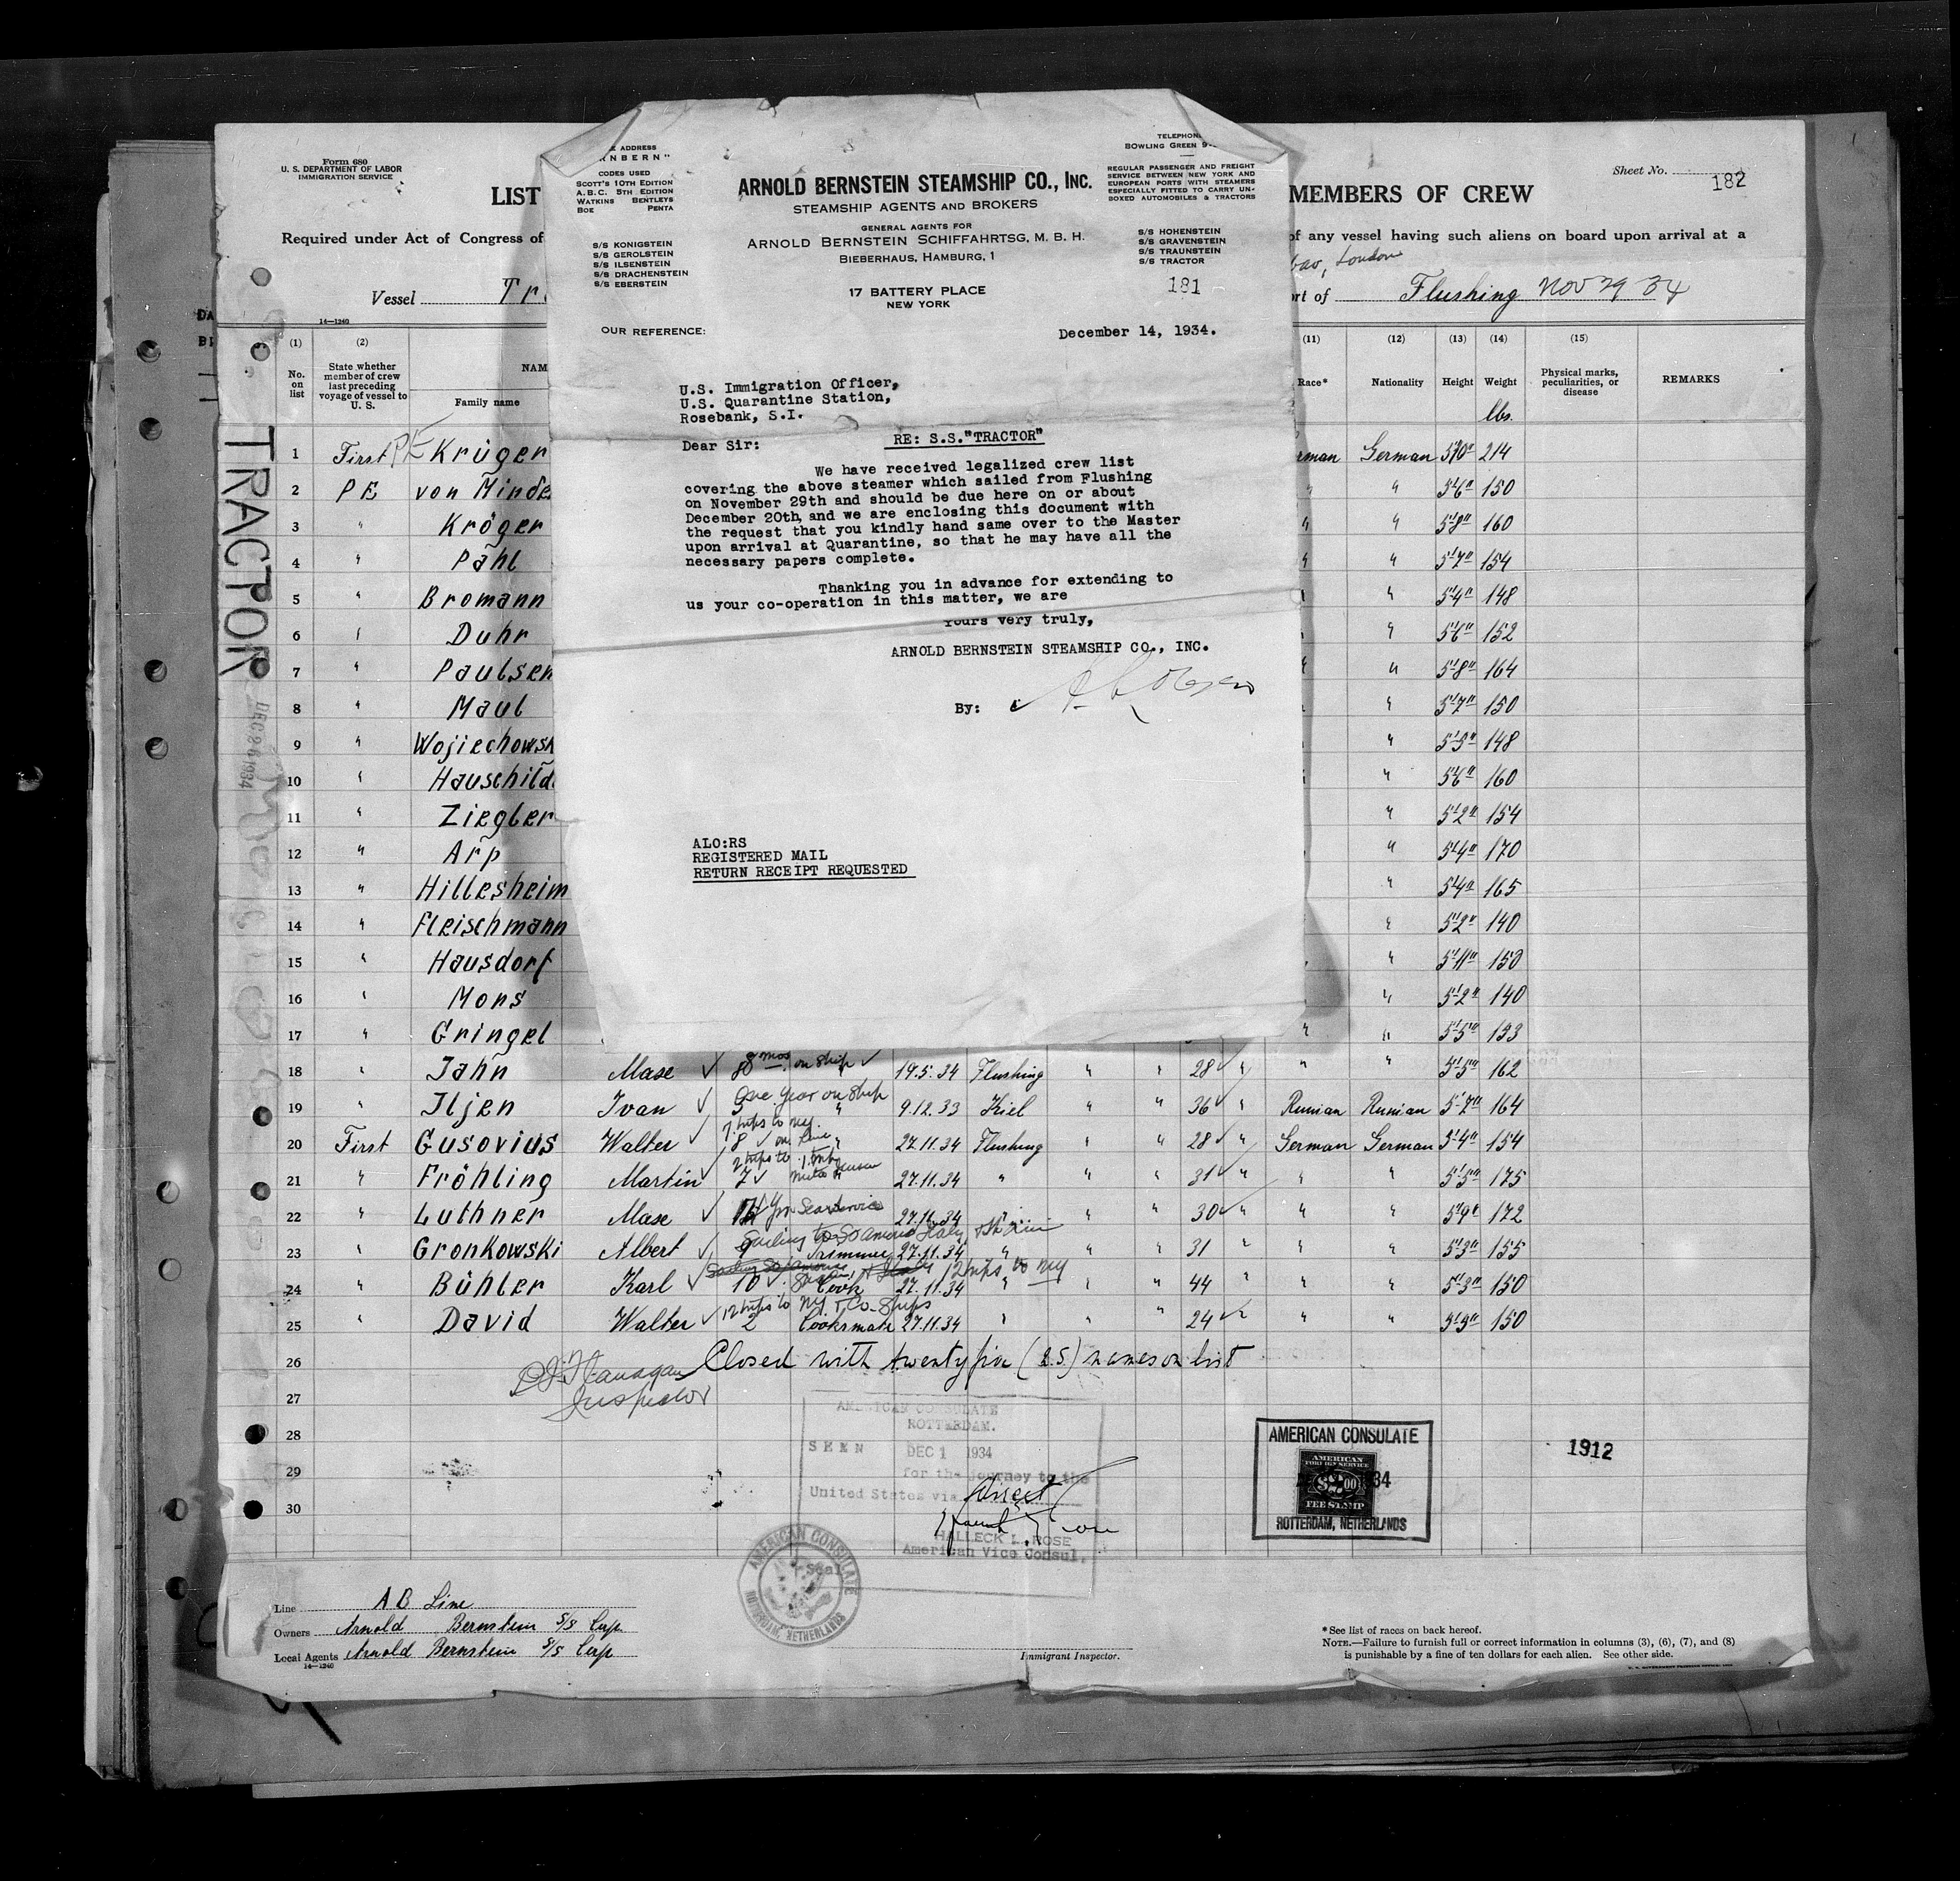 Form 680
U. S. DEPARTMENT OF LABOR
IMMIGRATION SERVICE
LIST
MEMBERS OF CREW
Sheet No.
182
Required under Act of Congress of
of any vessel having such aliens on board upon arrival at a
London
Vessel
Tr
rt of Flushing Nov 29 34
14—1240
ADDRESS
RNBERN"
CODES USED
SCOTT'S 10TH EDITION
A.B.C. 5TH EDITION
WATKINS BENTLEYS
BOE PENTA
ARNOLD BERNSTEIN STEAMSHIP CO., INC.
STEAMSHIP AGENTS AND BROKERS
GENERAL AGENTS FOR
ARNOLD BERNSTEIN SCHIFFAHRTSG, M. B. H.
BIEBERHAUS, HAMBURG, 1
17 BATTERY PLACE
NEW YORK
TELEPHON
BOWLING GREEN 9
REGULAR PASSENGER AND FREIGHT
SERVICE BETWEEN NEW YORK AND
EUROPEAN PORTS WITH STEAMERS
ESPECIALLY FITTED TO CARRY UN-
BOXED AUTOMOBILES & TRACTORS
S/S KONIGSTEIN
S/S GEROLSTEIN
S/S ILSENSTEIN
S/S DRACHENSTEIN
S/S EBERSTEIN
S/S HOHENSTEIN
S/S GRAVENSTEIN
S/S TRAUNSTEIN
S/S TRACTOR
181
OUR REFERENCE:
December 14, 1934.
U.S. Immigration Officer,
U.S. Quarantine Station,
Rosebank, S.I.
Dear Sir:
RE: S.S."TRACTOR"
We have received legalized crew list
covering the above steamer which sailed from Flushing
on November 29th and should be due here on or about
December 20th, and we are enclosing this document with
the request that you kindly hand same over to the Master
upon arrival at Quarantine, so that he may have all the
necessary papers complete.
Thanking you in advance for extending to
us your co-operation in this matter, we are
Yours very truly,
ARNOLD BERNSTEIN STEAMSHIP CO., INC.
By:
ALO:RS
REGISTERED MAIL
RETURN RECEIPT REQUESTED
TRACTOR
DEC 20 1934
(1) (2) (11) (12) (13) (14) (15)
No. on list
State whether member of crew last preceding voyage of vessel to U. S.
NAM
Family name
Race*
Nationality
Height
Weight
Physical marks, peculiarities, or disease
REMARKS
lbs.
1 First PE Krüger rman German 5'10" 214
2 PE von Minde " 5'6" 150
3 " Kröger " " 5'8" 160
4 " Pahl " " 5'7" 154
5 " Bromann " 5'4" 148
6 " Duhr " 5'6" 152
7 " Paulsen " " 5'8" 164
8 " Maul " 5'7" 150
9 " Wojiechowsk " 5'5" 148
10 " Hauschild " 5'6" 160
11 " Ziegler " 5'2" 154
12 " Arp " 5'4" 170
13 " Hillesheim " 5'4" 165
14 " Fleischmann " 5'2" 140
15 " Hausdorf " 5'11" 150
16 " Mons " 5'2" 140
17 " Gringel " " 5'5" 153
18 " Jahn Mase 8 mos. on ship 19.5.34 Flushing " " 28 " " " 5'5" 162
19 " Iljen Ivan One year on ship 9.12.33 Kiel " " 36 " Russian Russian 5'7" 164
20 First Gusovius Walter 7 trips to NY. 8 on Line " 27.11.34 Flushing " 28 " German German 5'4" 154
21 " Fröhling Martin 2 trips to 7 27.11.34 " " " 31 " " " 5'5" 175
22 " Luthner Mase Sea Service 27.11.34 " " " 30 " " " 5'9" 172
23 " Gronkowski Albert Sailing to So America Italy 9 Trimmer 27.11.34 " " " 31 " " " 5'3" 155
24 " Bühler Karl 12 trips to NY 10 Cook 27.11.34 " " " 44 " " " 5'3" 150
25 " David Walter 12 trips to NY Co. Ships 2 Cooksmate 27.11.34 " " 24 " " " 5'5" 150
26 Closed with twentyfive (25) names on list
27
Flanagan
Inspector
28
29
30
AMERICAN CONSULATE
ROTTERDAM.
SEEN DEC 1 1934
for the journey to the
United States via Direct
HALLECK L. ROSE
American Vice Consul.
Seal
AMERICAN CONSULATE
ROTTERDAM, NETHERLANDS
AMERICAN CONSULATE
AMERICAN
FOREIGN SERVICE
FEE STAMP
34
ROTTERDAM, NETHERLANDS
1912
Line A B Line
Owners Arnold Bernstein S/S Corp
Local Agents Arnold Bernstein S/S Corp
14—1240
Immigrant Inspector.
*See list of races on back hereof.
NOTE.—Failure to furnish full or correct information in columns (3), (6), (7), and (8)
is punishable by a fine of ten dollars for each alien. See other side.